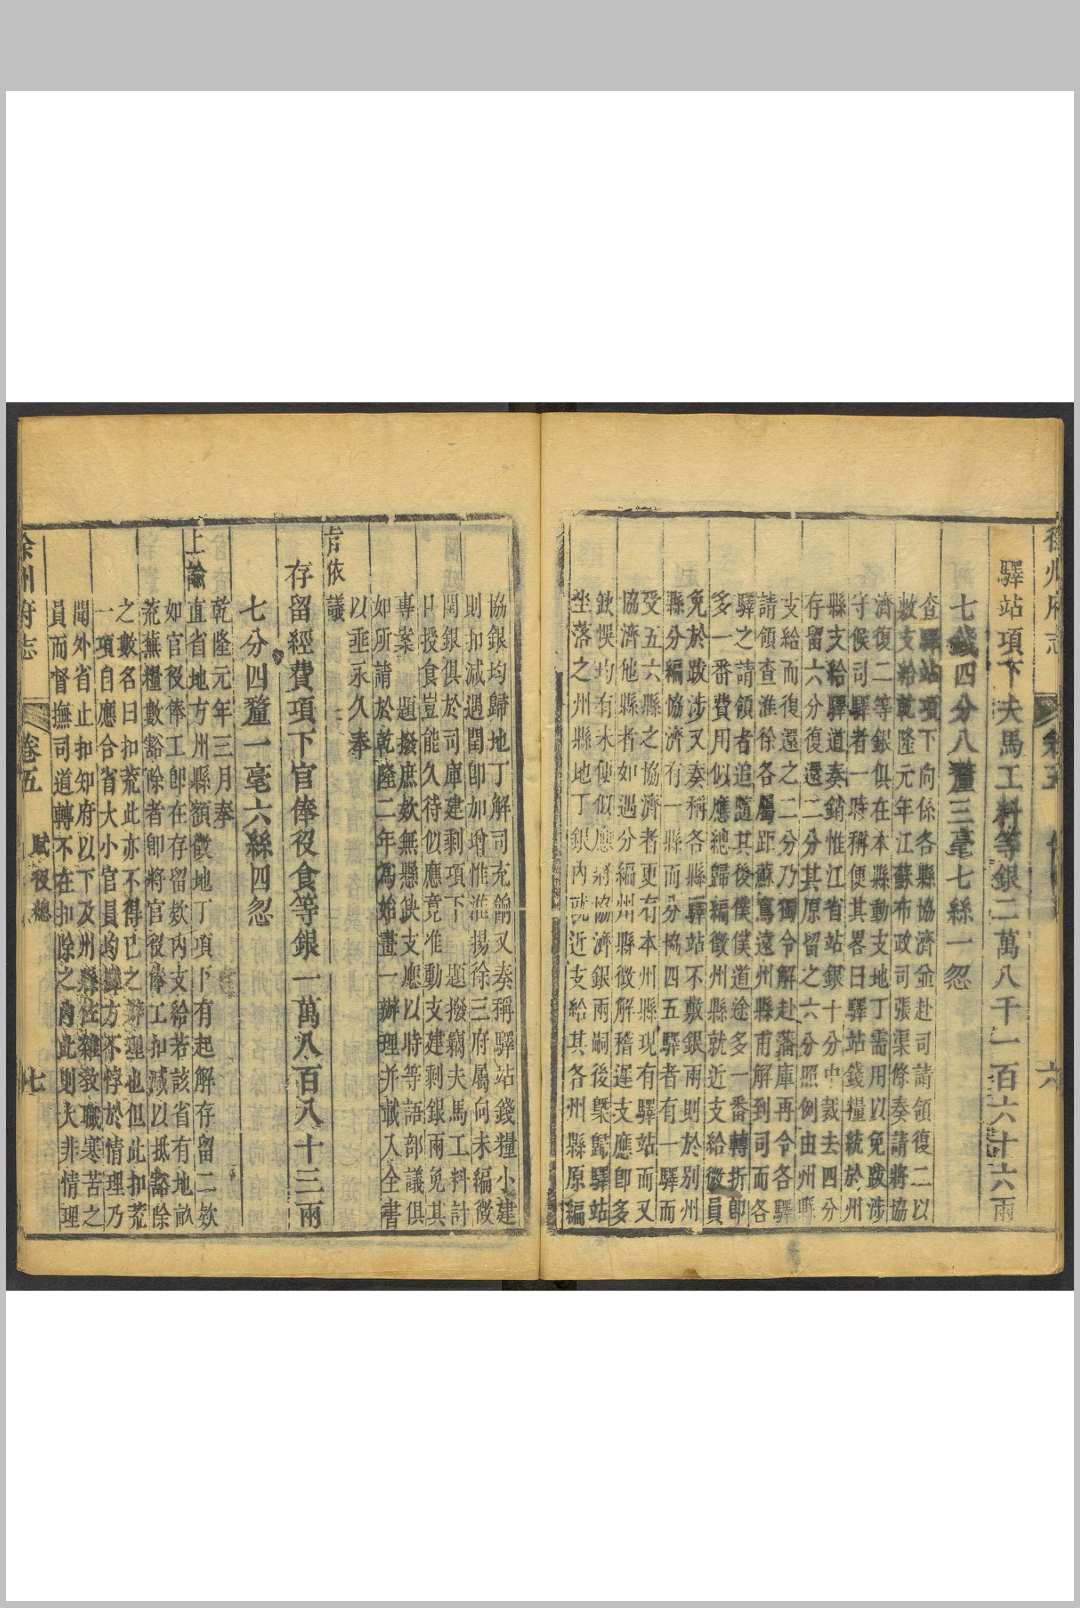 徐州府志
卷五
六
驛站項下夫馬工料等銀二萬八千一百六十六兩
七錢四分八釐三毫七絲一忽
查驛站項下向係各縣協濟並赴司請領復二以
救支給乾隆元年江蘇布政司張渠條奏請將協
濟復二等銀俱在本縣動支地丁需用以免跋涉
守候司驛者一時稱便其畧曰驛站錢糧統於州
縣支給驛道奏銷惟江省站銀十分中裁去四分
存留六分復還二分其原留之六分照例由州縣
支給而復還之二分乃獨令解赴藩庫再令各驛
請領查淮徐各屬距蘇寫遠州縣甫解到司而各
驛之請領者追隨其後僕僕道途多一番轉折即
多一番費用似應總歸編徵州縣就近支給徵員
免於跋涉又奏稱各縣驛站不敷銀兩則於別州
縣分編協濟有一縣而分協四五驛者有一驛而
受五六縣之協濟者更有本州縣現有驛站而又
協濟他縣者如遇分編州縣徵解稽遲支應即多
欽悞均有未便似應將協濟銀兩嗣後槩歸驛站
坐落之州縣地丁銀內就近支給其各州縣原編
協銀均歸地丁解司充餉又奏稱驛站錢糧小建
則扣減遇閏卽加增惟淮揚徐三府屬向未編徵
閏銀俱於司庫建剩項下題撥竊夫馬工料計
日授食豈能久待似應竟准動支建剩銀兩免其
專案題撥庶欵無懸缺支應以時等語部議俱
如所請於乾隆二年為始畫一辦理并載入全書
以垂永久奉
旨依議
存留經費項下官俸役食等銀一萬八百八十三兩
七分四釐一毫六絲四忽
乾隆元年三月奉
上諭直省地方州縣額徵地丁項下有起解存留二欵
如官役俸工卽在存留欵內支給若該省有地畝
荒蕪糧數豁除者卽將官役俸工扣減以抵豁除
之數名曰扣荒此亦不得已之辦理也但此扣荒
一項自應合省大小官員均攤方不悖於情理乃
聞外省止扣知府以下及州縣佐雜敎職寒苦之
員而督撫司道轉不在扣除之內此則大非情理
徐州府志
卷五
賦役總
七